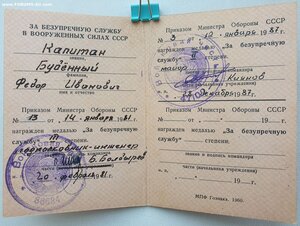 ЗА БЕЗУПРЕЧНУЮ СЛУЖБУ
В ВООРУЖЕННЫХ СИЛАХ СССР
Капитан
звание,
Будённый
фамилия,
Федор Иванович
имя и отчество
Приказом Министра Обороны СССР
№ 13 от „14“ января 1981 г.
награжден медалью „За безупречную
службу“ III степени.
подполковник-инженер
Б. Болдырев
части (начальника учреждения)
„20“ февраля 1981 г.
88684
Приказом Министра Обороны СССР
№ 3 от „10“ января 1987 г.
награжден медалью „За безупречную
службу“ II степени.
майор
части (начальника учреждения)
1987 г.
Приказом Министра Обороны СССР
№ от „ “ 19 г.
награжден медалью „За безупречную
службу“ степени.
звание и подпись командира
части (начальника учреждения)
„ “ 19 г.
МПФ Гознака. 1960.